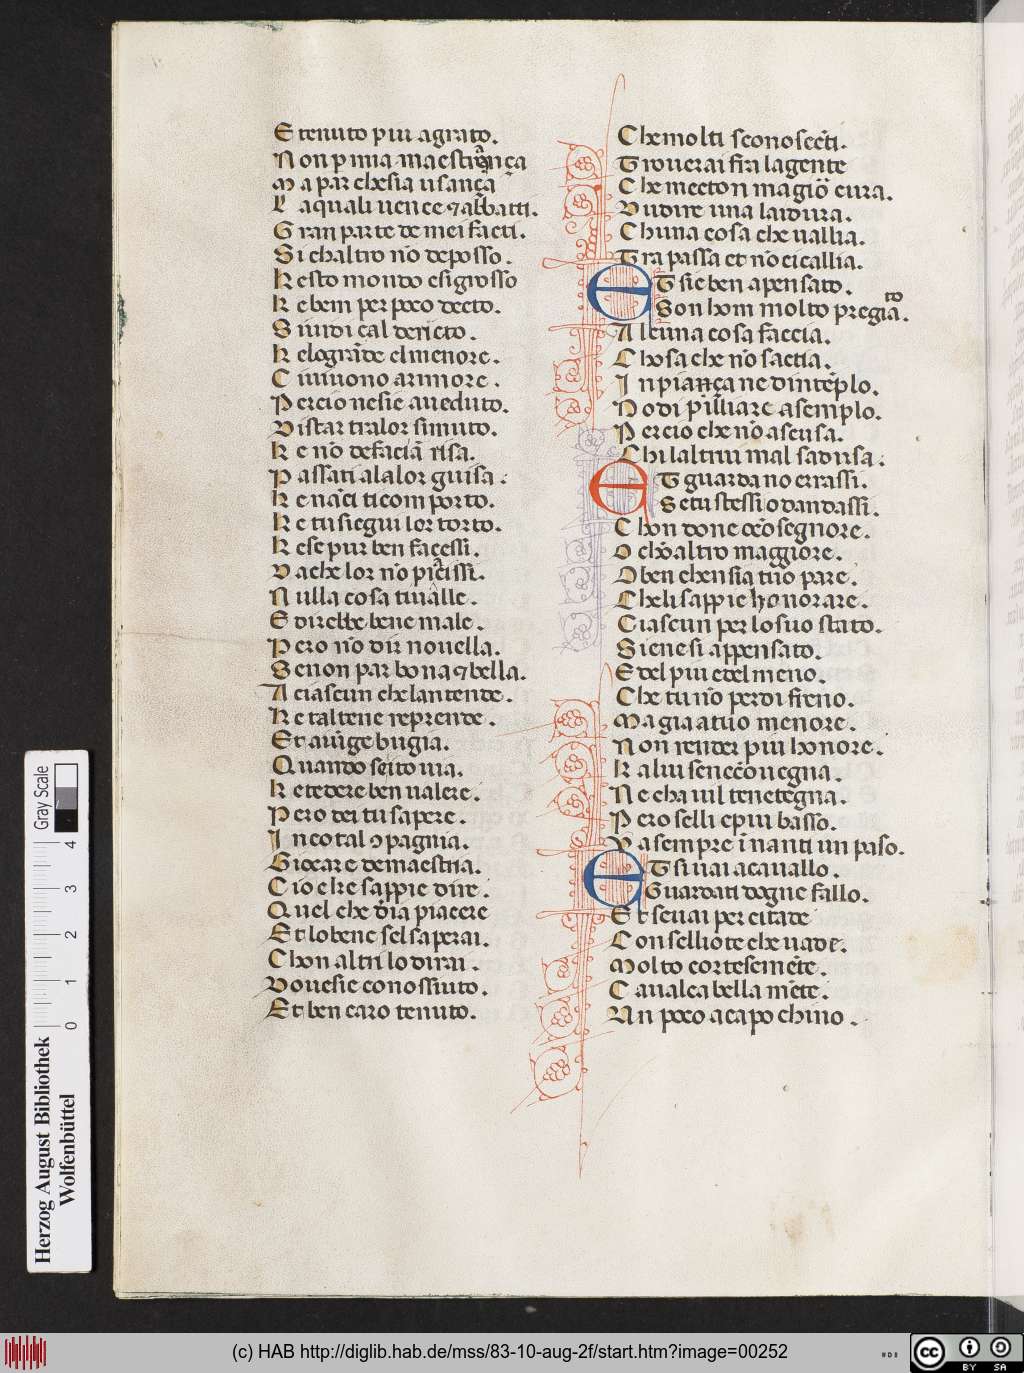 E tenuto piu agrato.
Non p mia maestrança
Ma par chesia usança
La quali uence ⁊ abbatti.
Gran parte de mei facti.
Si chaltro nō deposso.
Kesto mondo esigrosso
Ke bem per poco decto.
Siuidi cal dericto.
Ke logrāde elmenore.
Ciuiuono armore.
Percio nesie aueduto.
Distar tralor simuto.
Ke nō defaciā risa.
Passati alalor guisa.
Ke nāci ticom porto.
Ke tusiegui lor torto.
Ke se pur ben facessi.
Da che lor nō piacissi.
Nulla cosa tiuālle.
E direbbe bene male.
Pero nō dir nouella.
Se non par bona ⁊ bella.
A ciascun che lantende.
Ke taltene reprende.
Et auīge bugia.
Quando seito uia.
Ke tedere ben ualere.
Pero dei tu sapere.
In cotal ꝯpagnia.
Giocare demaestria.
Cio che sappie dire.
Quel che dia piacere
Et lobene sel saperai.
Chon altri lo dirai.
Doue sie conossuto.
Et ben caro tenuto.
Che molti sconosēti.
Trouerai fra lagente
Che mecton magiō cura.
Dudire una laidura.
Chuna cosa che uallia.
Trapassa et nō eicallia.
ET sie ben apensato.
Son hom molto pregiato.
Alcuna cosa faccia.
Chosa che nō sacia.
In piança ne dintēplo.
No di pilliare asemplo.
Percio che nō a scusa.
Chi laltrui mal sadusa.
ET guarda no errassi.
Se tu stessi o dandassi.
Chon done o cō segnore.
O chō altro maggiore.
O ben chensia tuo pare.
Cheli sappie honorare.
Ciascun per lo suo stato.
Siene si appensato.
E del piu e del meno.
Che tu nō perdi freno.
Ma gia a tuo menore.
Non render piu honore.
Kalui senecōuegna.
Ne cha uil tenetegna.
Pero selli e piu basso.
Va sempre inanti un paso.
ET si uai a cauallo.
Guardati dogne fallo.
Et se uai per citade
Consellioteche uade.
Molto cortesemēte.
Caualca bella mēte.
Un poco a capo chino.
Herzog August Bibliothek
Wolfenbüttel
Gray Scale
0 1 2 3 4
(c) HAB http://diglib.hab.de/mss/83-10-aug-2f/start.htm?image=00252
cc BY SA